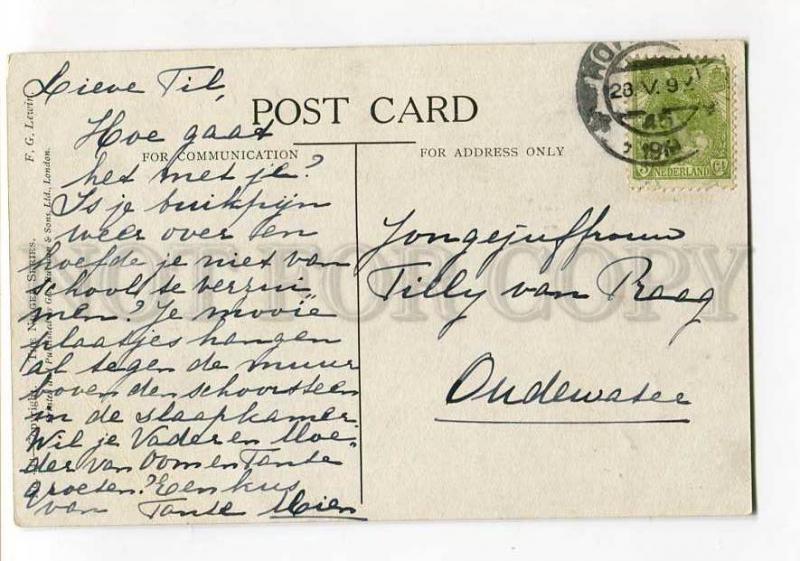 POST CARD
FOR COMMUNICATION
FOR ADDRESS ONLY
Lieve Til,
Hoe gaat
het met je?
Is je buikpijn
weer over en
hoefde je niet van
school te verzui
men? Je mooie
plaatjes hangen
al tegen de muur
boven den schoorsteen
in de slaapkamer.
Wil je Vader en Moe-
der van Oom en Tante
groeten? Een kus
van Tante Mien
Jongejuffrouw
Tilly van Praag
Oudewater
28 V. 9
NEDERLAND
F. G. Lewin.
& Sons, Ltd., London.
NOT FOR COPY